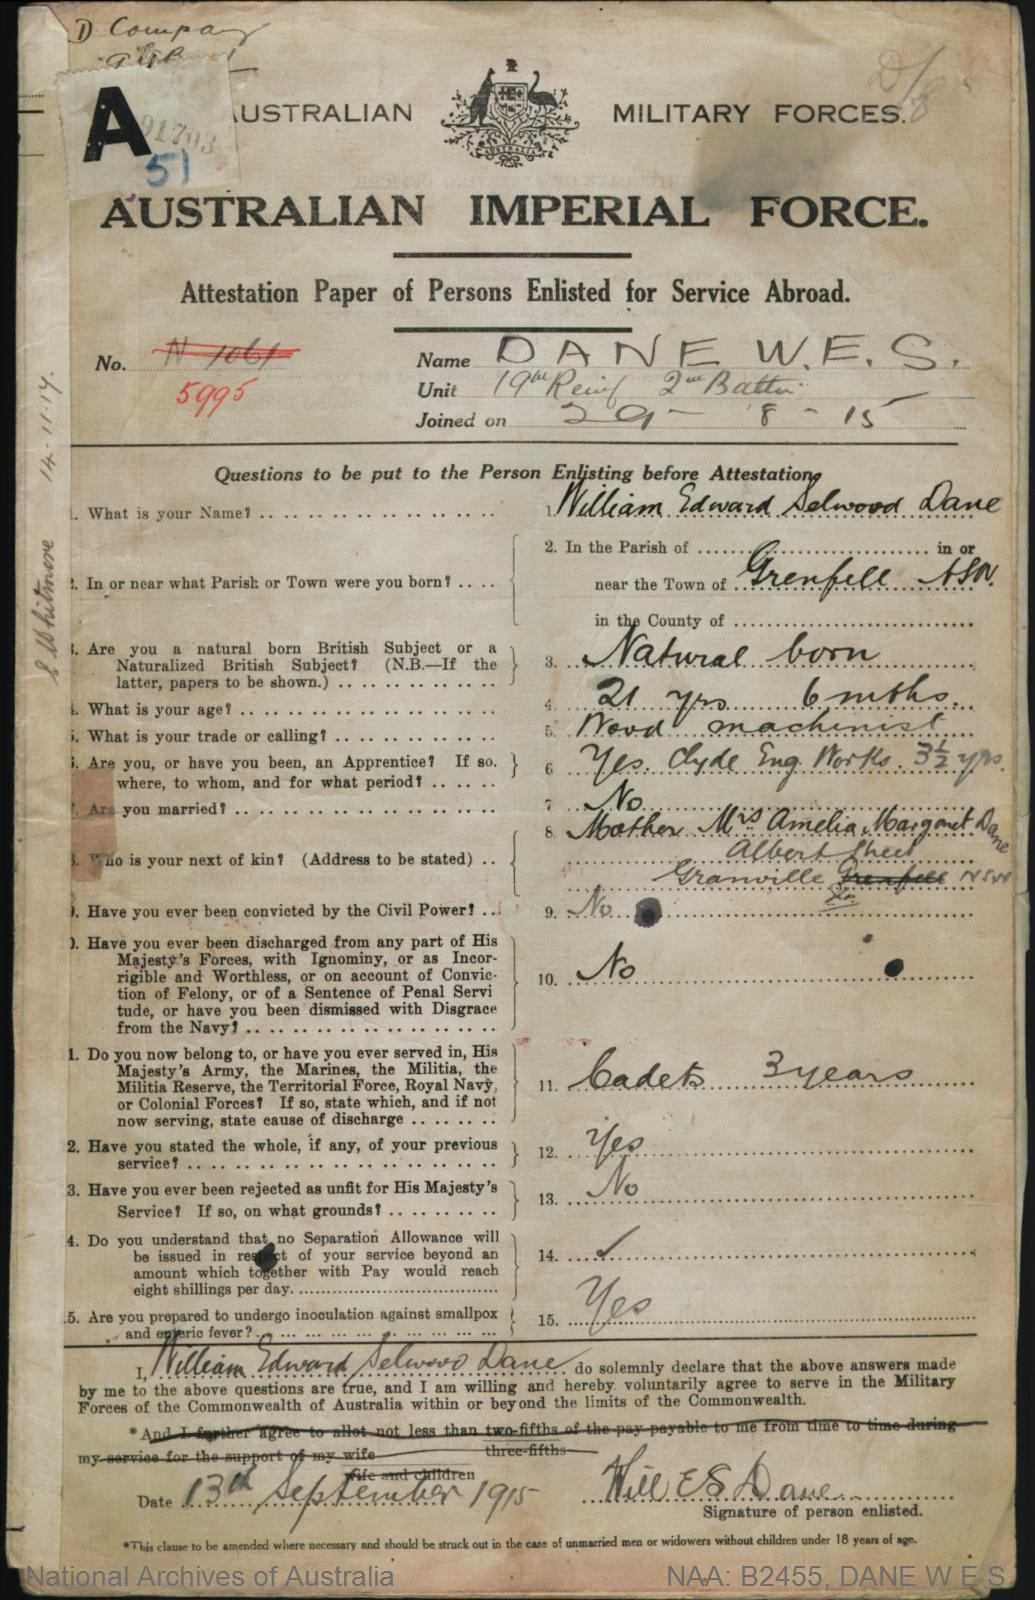 D Company
A
91703
51
AUSTRALIAN MILITARY FORCES.
AUSTRALIA
AUSTRALIAN IMPERIAL FORCE.
Attestation Paper of Persons Enlisted for Service Abroad.
No. N 1061
5995
Name DANE W. E. S.
Unit 19th Reinf 2nd Battn
Joined on 29 - 8 - 15
Whitmore 14-11-17.
Questions to be put to the Person Enlisting before Attestation
1. What is your Name? 1. William Edward Selwood Dane
2. In or near what Parish or Town were you born? 2. In the Parish of in or
near the Town of Grenfell NSW.
in the County of
3. Are you a natural born British Subject or a
Naturalized British Subject? (N.B.—If the
latter, papers to be shown.) 3. Natural born
4. What is your age? 4 21 yrs 6 mths.
5. What is your trade or calling? 5. Wood machinist
6. Are you, or have you been, an Apprentice? If so,
where, to whom, and for what period? 6 Yes. Clyde Eng Works. 3½ yrs.
7. Are you married? 7 No
8. Who is your next of kin? (Address to be stated) 8. Mother Mrs Amelia Margaret Dane
Albert Street
Granville Grenfell NSW
9. Have you ever been convicted by the Civil Power? 9. No
10. Have you ever been discharged from any part of His
Majesty's Forces, with Ignominy, or as Incor-
rigible and Worthless, or on account of Convic-
tion of Felony, or of a Sentence of Penal Servi
tude, or have you been dismissed with Disgrace
from the Navy? 10. No
11. Do you now belong to, or have you ever served in, His
Majesty's Army, the Marines, the Militia, the
Militia Reserve, the Territorial Force, Royal Navy,
or Colonial Forces? If so, state which, and if not
now serving, state cause of discharge 11. Cadets 3 years
2. Have you stated the whole, if any, of your previous
service? 12. Yes
3. Have you ever been rejected as unfit for His Majesty's
Service? If so, on what grounds? 13. No
4. Do you understand that no Separation Allowance will
be issued in respect of your service beyond an
amount which together with Pay would reach
eight shillings per day. 14. ✓
5. Are you prepared to undergo inoculation against smallpox
and enteric fever? 15. Yes
I, William Edward Selwood Dane do solemnly declare that the above answers made
by me to the above questions are true, and I am willing and hereby voluntarily agree to serve in the Military
Forces of the Commonwealth of Australia within or beyond the limits of the Commonwealth.
*And I further agree to allot not less than two-fifths of the pay payable to me from time to time during
three-fifths
my service for the support of my wife
wife and children
Date 13th September 1915 Will E S Dane
Signature of person enlisted.
*This clause to be amended where necessary and should be struck out in the case of unmarried men or widowers without children under 18 years of age.
National Archives of Australia NAA: B2455, DANE W E S